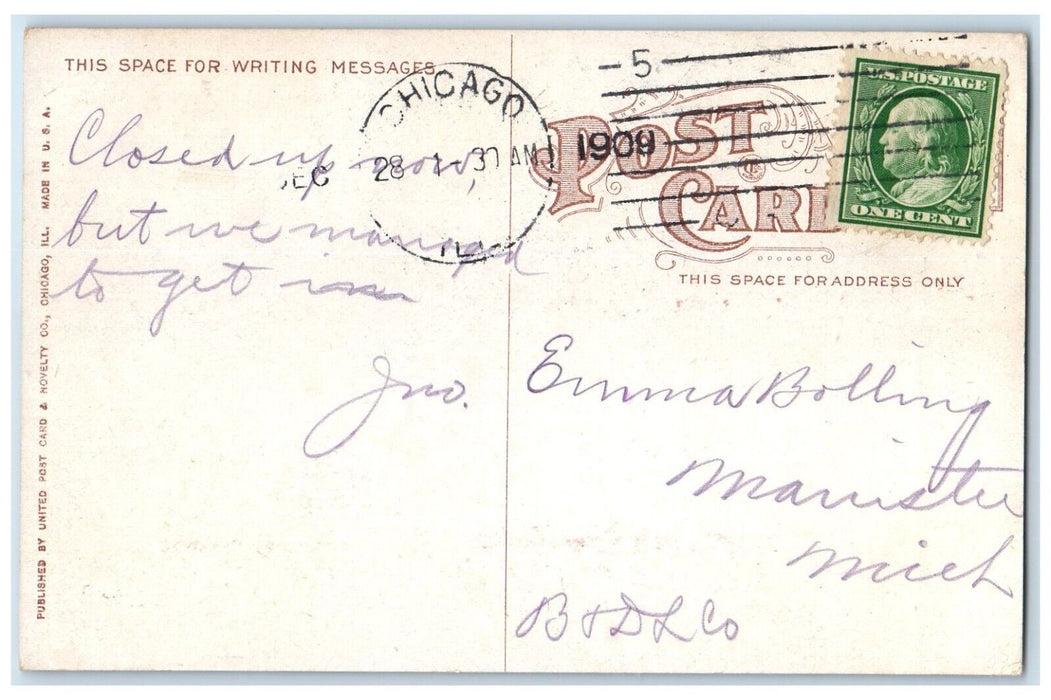 THIS SPACE FOR WRITING MESSAGES
Closed up now,
but we managed
to get in
Jno.
CHICAGO
DEC 28 1-30 AM
ILL.
5
1909
U.S. POSTAGE
ONE CENT
POST
CARD
THIS SPACE FOR ADDRESS ONLY
Emma Bolling
Manistee
Mich
B & D L Co
PUBLISHED BY UNITED POST CARD & NOVELTY CO., CHICAGO, ILL. MADE IN U. S. A.